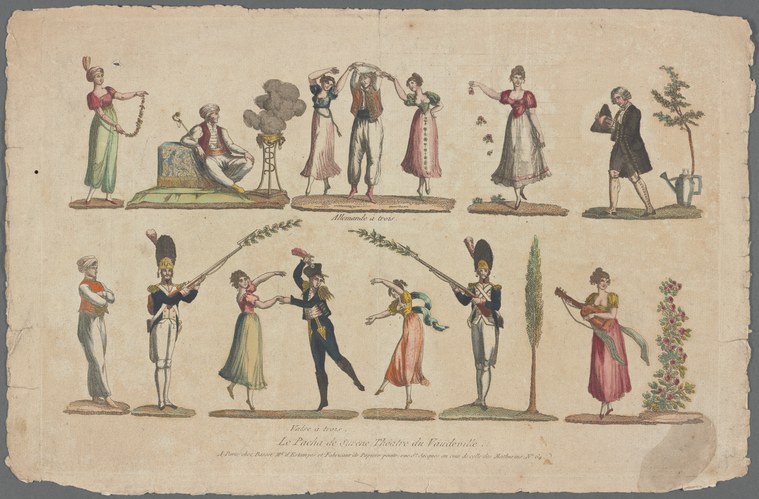 Allemande à trois
Valse à trois.
Le Pacha de Surene Théâtre du Vaudeville
A Paris chez Basset Md. d'Estampes et Fabricant de Papiers peints rue St. Jacques au coin de celle des Mathurins No. 64